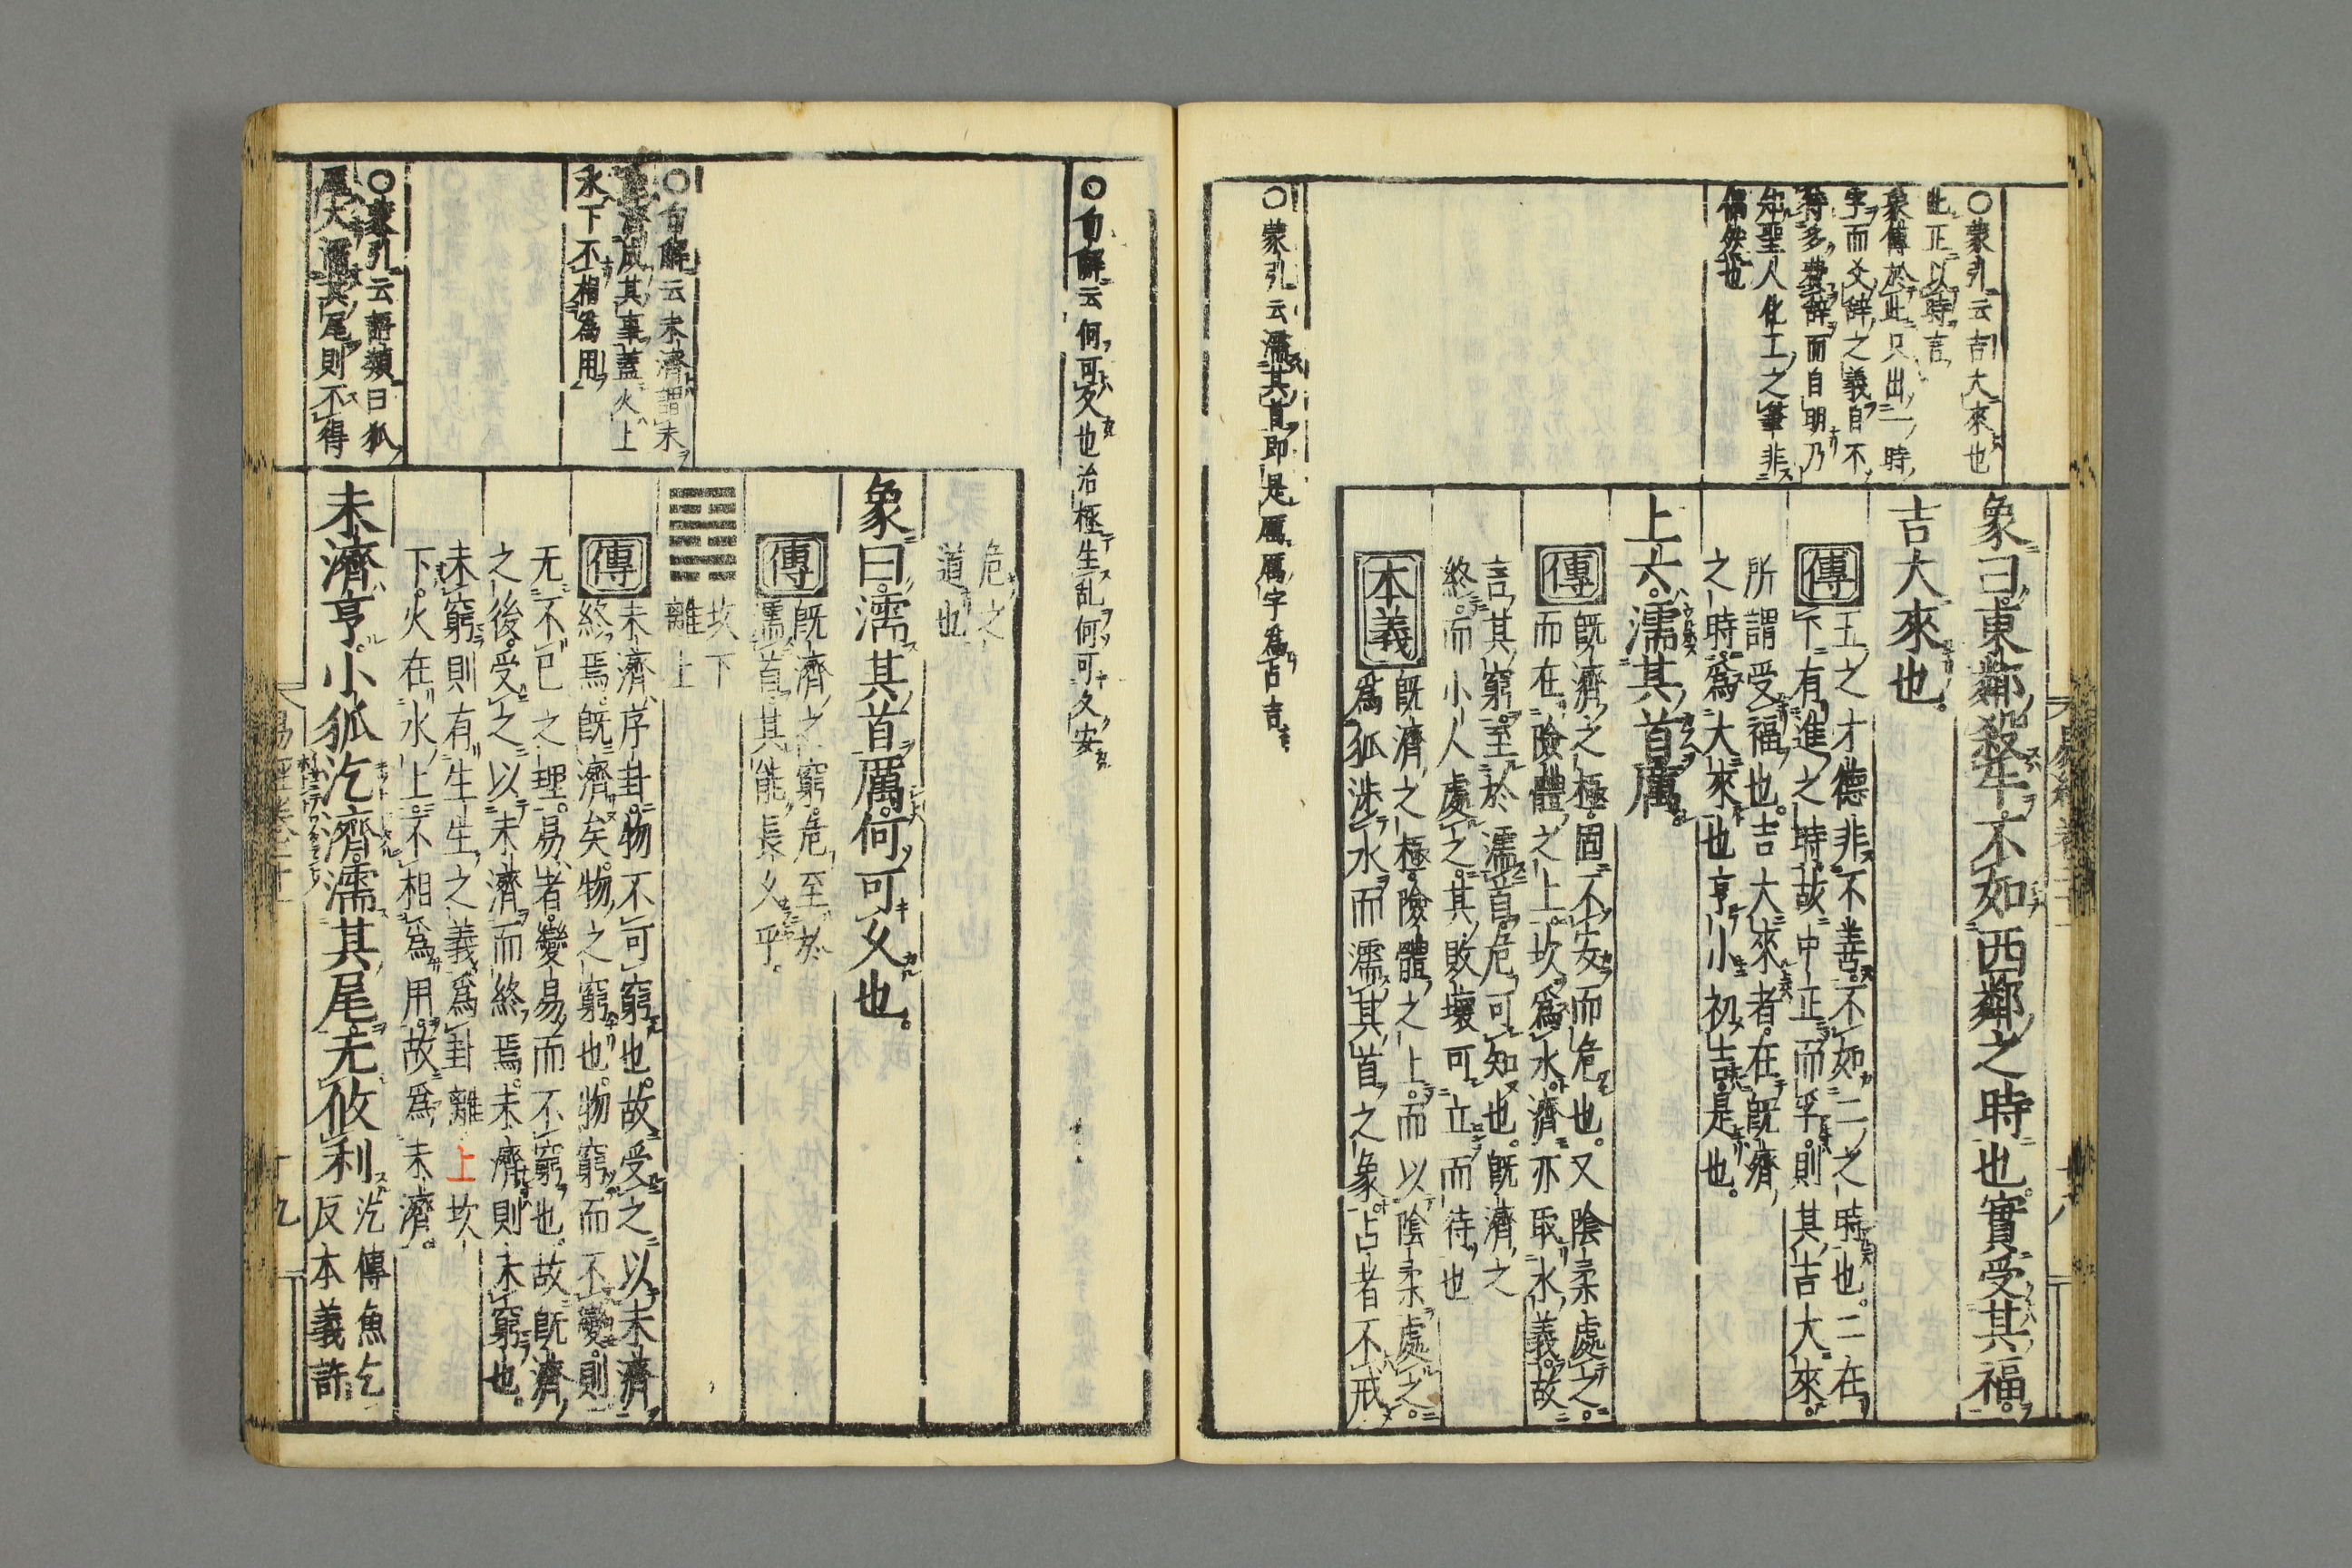 象曰東鄰殺牛不如西鄰之時也實受其福
吉大來也
傳
五之才德非不善不如二之時也二在
下有進之時故中正而孚則其吉大來
所謂受福也吉大來者在既濟
之時爲大來也亨小初吉是也
上六濡其首厲
傳
既濟之極固不安而危也又陰柔處之
而在險體之上坎爲水濟亦取水義故
言其窮至於濡首危可知也既濟之
終而小人處之其敗壞可立而待也
本義
既濟之極險體之上而以陰柔處之
爲狐涉水而濡其首之象占者不戒
〇蒙引云吉大來也
此正以時言
象傳於此只出一時
字而爻辭之義自不
待多費辭而自明乃
知聖人化工之筆非
偶然也
〇蒙引云濡其首即是厲厲字爲占吉
危之
道也
象曰濡其首厲何可久也
傳
既濟之窮危至於
濡首其能長久乎
坎下
離上
傳
未濟序卦物不可窮也故受之以未濟
終焉既濟矣物之窮也物窮而不變則
无不已之理易者變易而不窮也故既濟
之後受之以未濟而終焉未濟則未窮也
未窮則有生生之義爲卦離上坎
下火在水上不相爲用故爲未濟
未濟亨小狐汔濟濡其尾无攸利
汔傳魚乞
反本義許
〇句解云何可久也治極生乱何可久安
〇句解云未濟謂未
濟成其事蓋火上
水下不相爲用
〇蒙引云語類曰狐
尾大濡其尾則不得
易經卷二十
十九